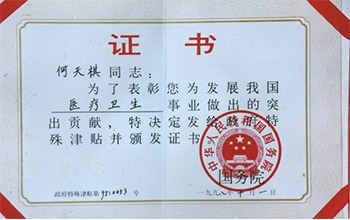 证书
何天棋同志：
为了表彰您为发展我国
医疗卫生事业做出的突
出贡献，特决定发给政府特
殊津贴并颁发证书
中华人民共和国国务院
国务院
政府特殊津贴第9510053号
一九九 年 月一日